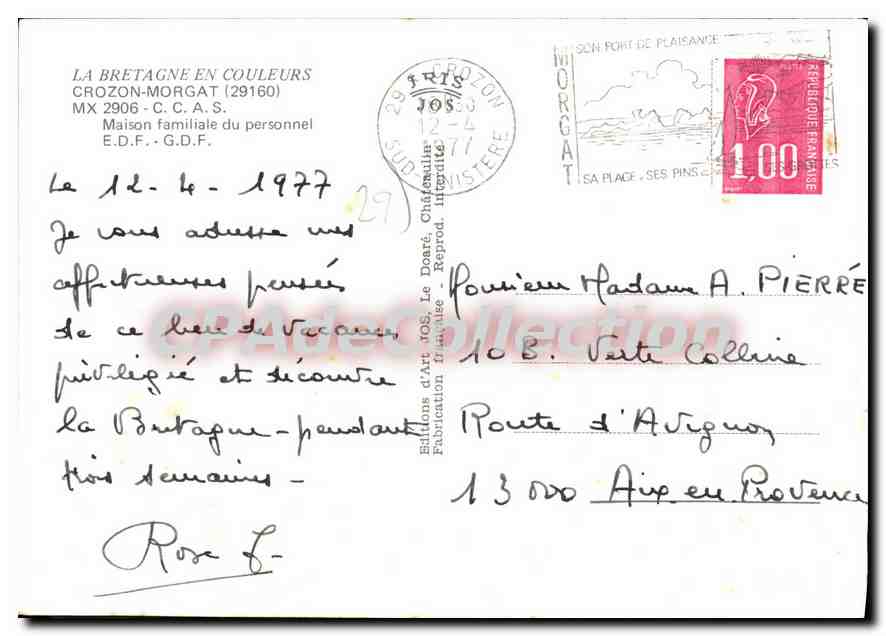 LA BRETAGNE EN COULEURS
CROZON-MORGAT (29160)
MX 2906 - C. C. A. S.
Maison familiale du personnel
E.D.F. - G.D.F.
Le 12-4-1977
Je vous adresse mes
affectueuses pensées
de ce lieu de vacances
privilégié et découvre
la Bretagne - pendant
trois semaines -
Rose F-
29
Editions d'Art JOS, Le Doaré, Châteaulin
Fabrication française - Reprod. interdite
IRIS
JOS
29 CROZON
12-4
1977
SUD-FINISTERE
MORGAT
SON PORT DE PLAISANCE
SA PLAGE. SES PINS
REPUBLIQUE FRANÇAISE
1,00
Monsieur Madame A. PIERRÉ
10 B. Verte Colline
Route d'Avignon
13 000 Aix en Provence
CPAdeCollection